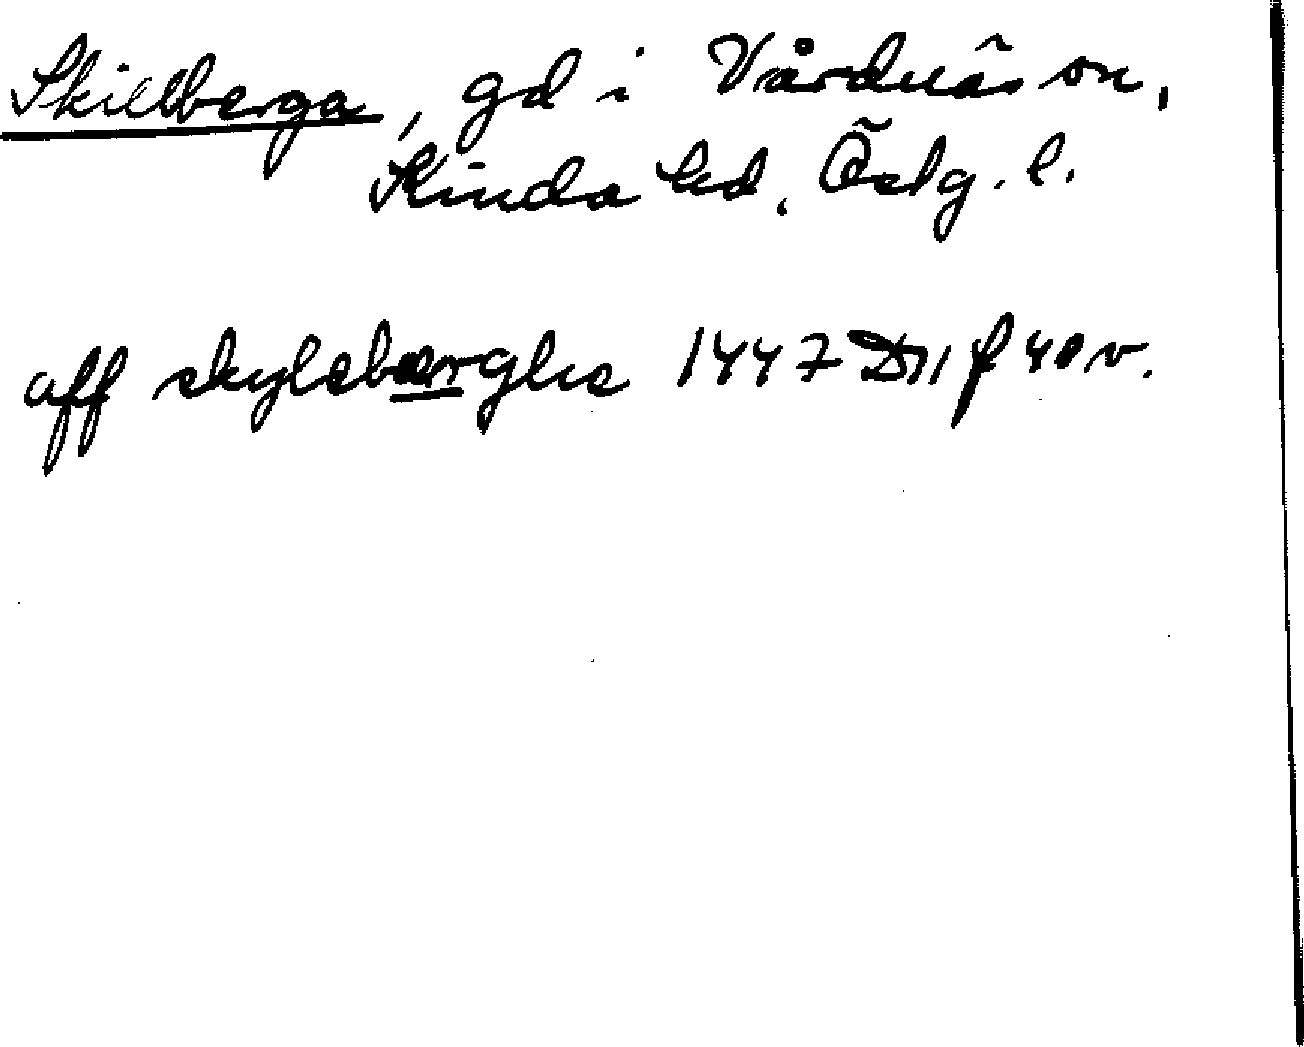 Skillberga, gd i Vårdnäs sn,
Kinda hd, Östg. l.
aff skylebærghe 1447 D 11 f 40 v.